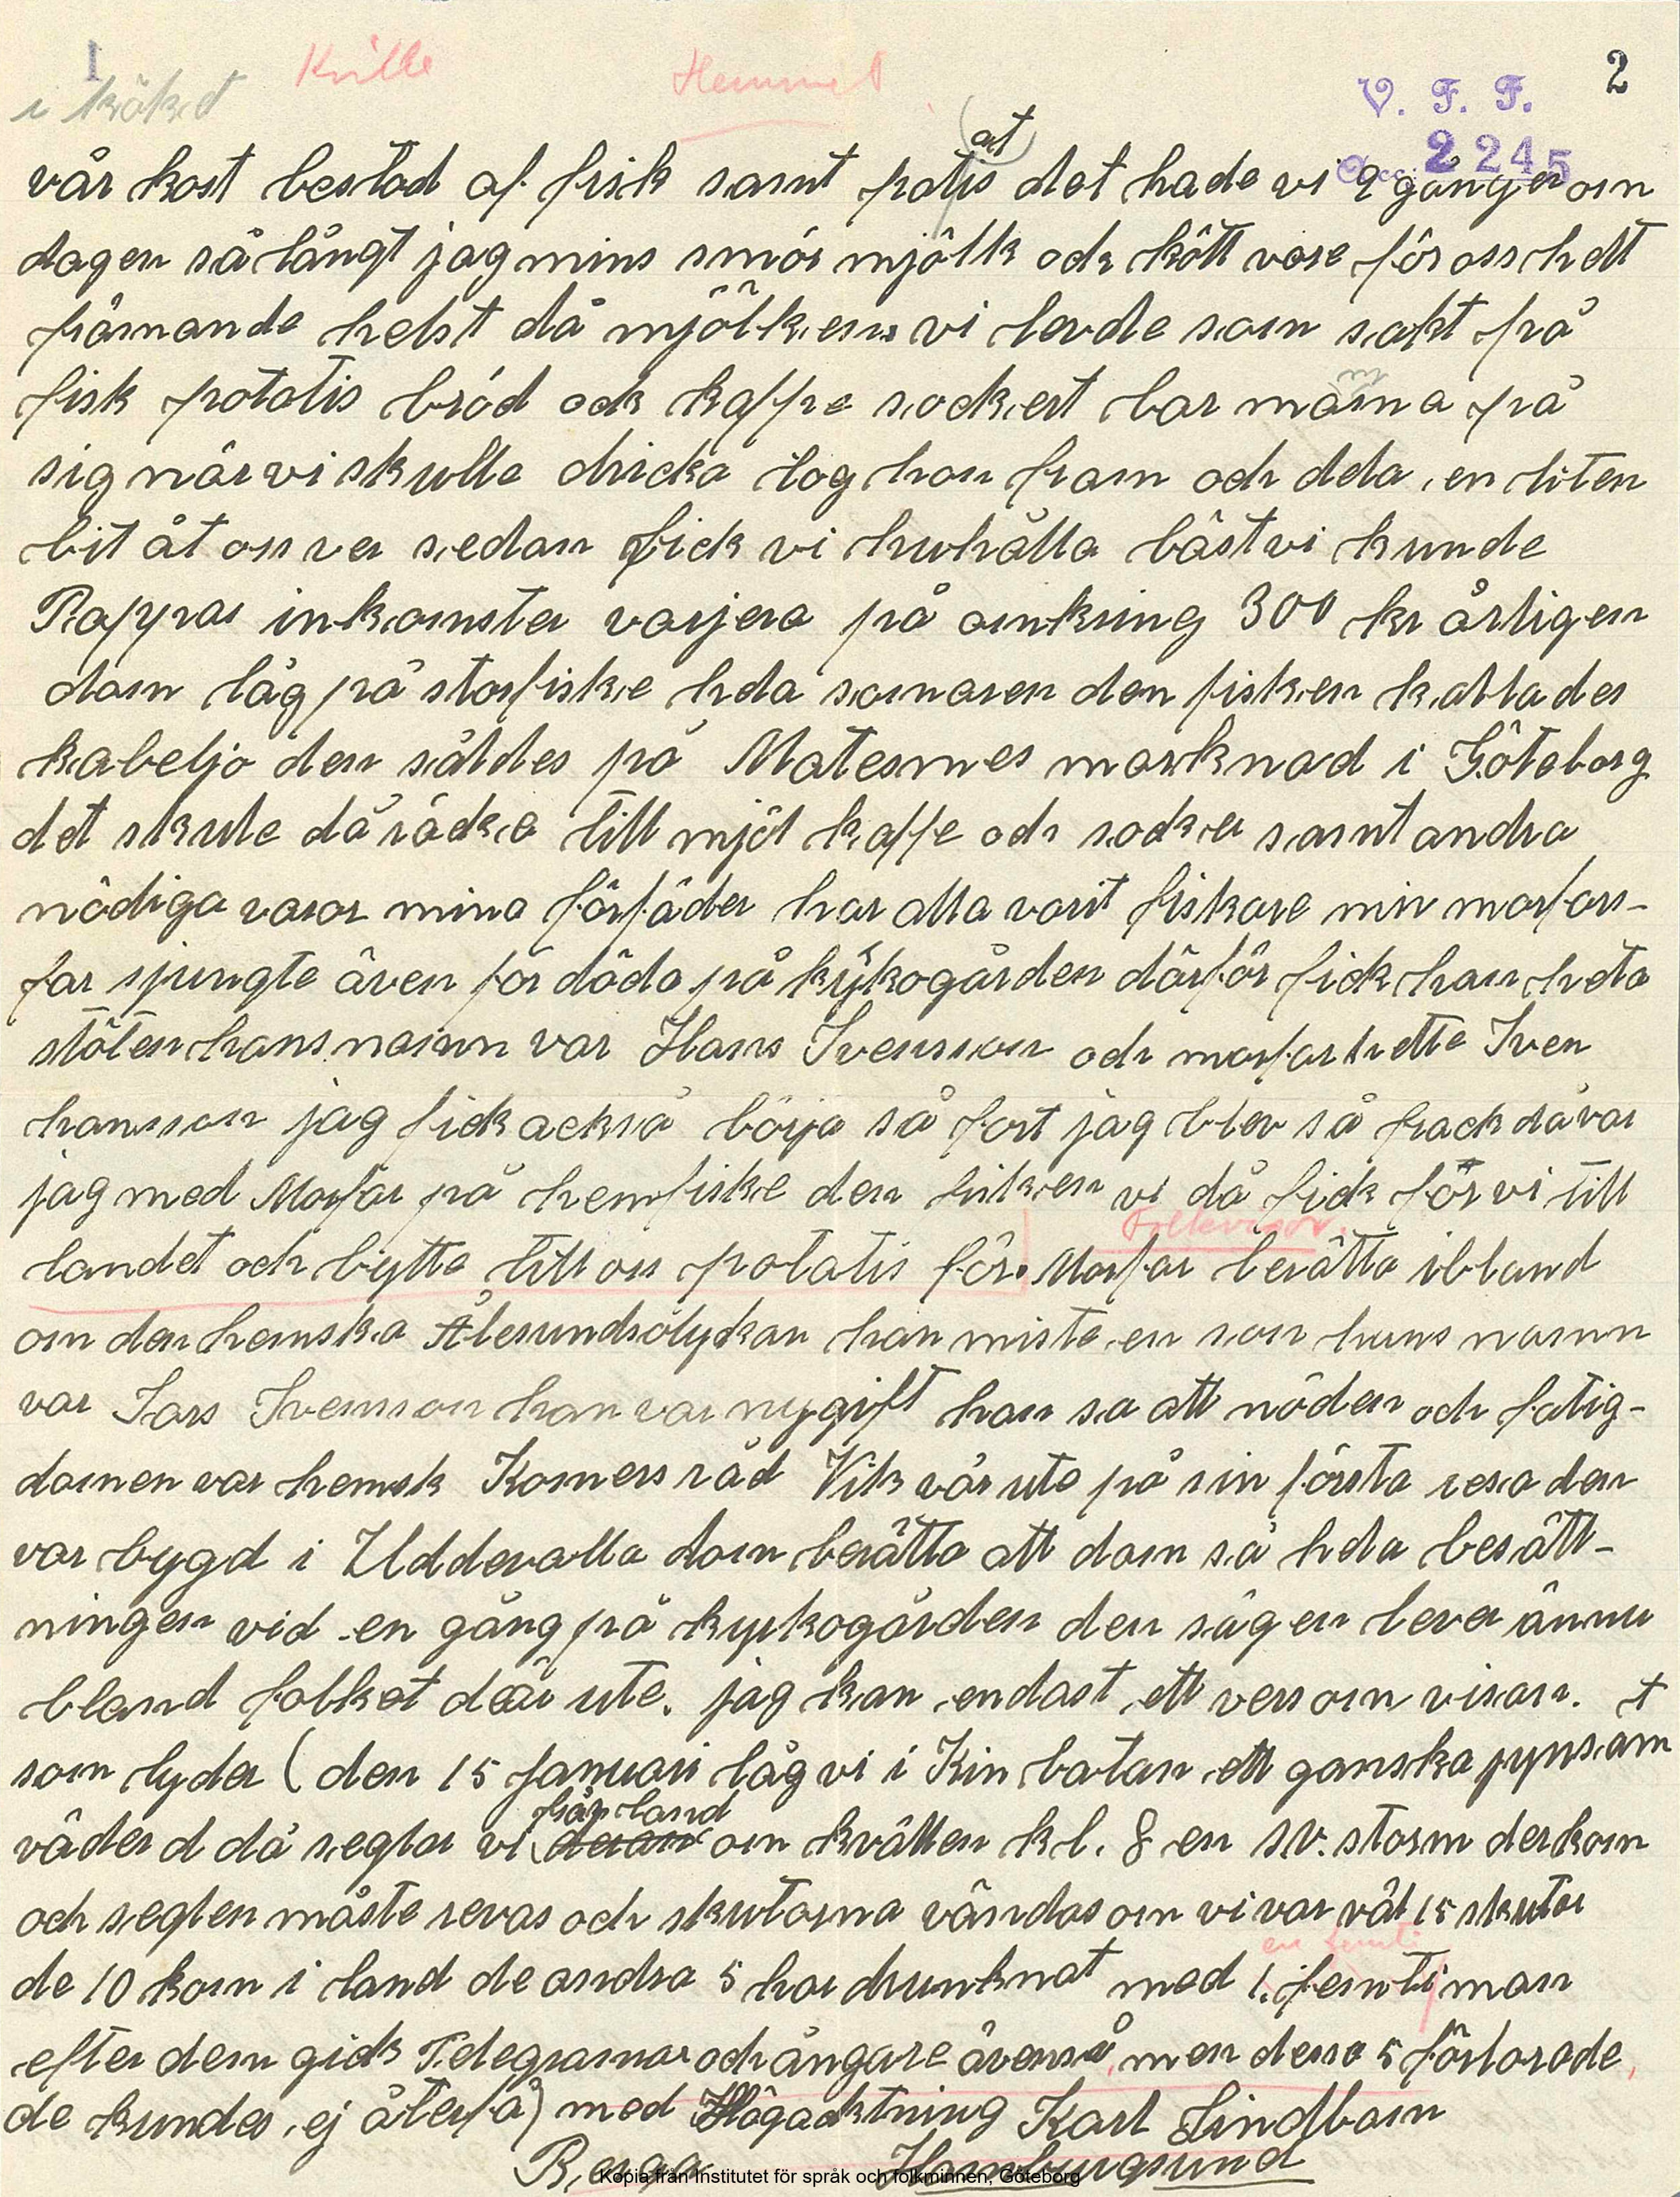 1
Kville
Hemmet
2
i köket
V. F. F.
Acc: 2245
vår kost bestod af fisk samt potatis det hade vi 2 gånger om
dagen så långt jag mins smör mjölk och kött vore för oss helt
främande helst då mjölken vi levde som sakt på
fisk potatis bröd och kaffe sockert bar mamma på
sig när vi skulle dricka tog hon fram och dela en liten
bit åt oss var sedan fick vi huhålla bäst vi kunde
Pappas inkomster varjera på omkring 300 kr årligen
dom låg på storfiske hela somaren den fisken kallades
kabeljo den såldes på Matesmes marknad i Göteborg
det skule då räcka till mjöl kaffe och socker samt andra
nödiga varor mina förfäder har alla varit fiskare min morfars-
far sjungte även för döda på kyrkogården därför fick han heta
stöten hans namn var Hans Svensson och morfar hette Sven
hansson jag fick ackså börja så fort jag blev så frack då var
jag med Morfar på hemfiske den fisken vi då fick för vi till
Folkvisor.
landet och bytte till oss potatis för. Morfar berätta ibland
om den hemska Ålesundsolyckan han miste en son hans namn
var Lars Svensson han var nygift han sa att nöden och fatig-
domen var hemsk Komersråd Vik var ute på sin första resa den
var bygd i Uddevalla dom berätta att dom så hela besätt-
ningen vid en gång på kyrkogården den sägen lever ännu
bland folket där ute. jag kan endast ett vers om visan. +
som lyder (den 15 Januari låg vi i Kin batan ett ganska pynsam
väder d då seglar vi från land om kvällen kl. 8 en s.v. storm der kom
och seglen måste revas och skutorna vändas om vi var väl 15 skutor
en femti
de 10 kom i land de andra 5 har drunknat med 1. femti man
efter dem gick Telegramar och ångare ävenså men dessa 5 förlorade,
de kundes ej återfå) med Högacktning Karl Lindbom
Berga Hamburgsund
Kopia från Institutet för språk och folkminnen, Göteborg